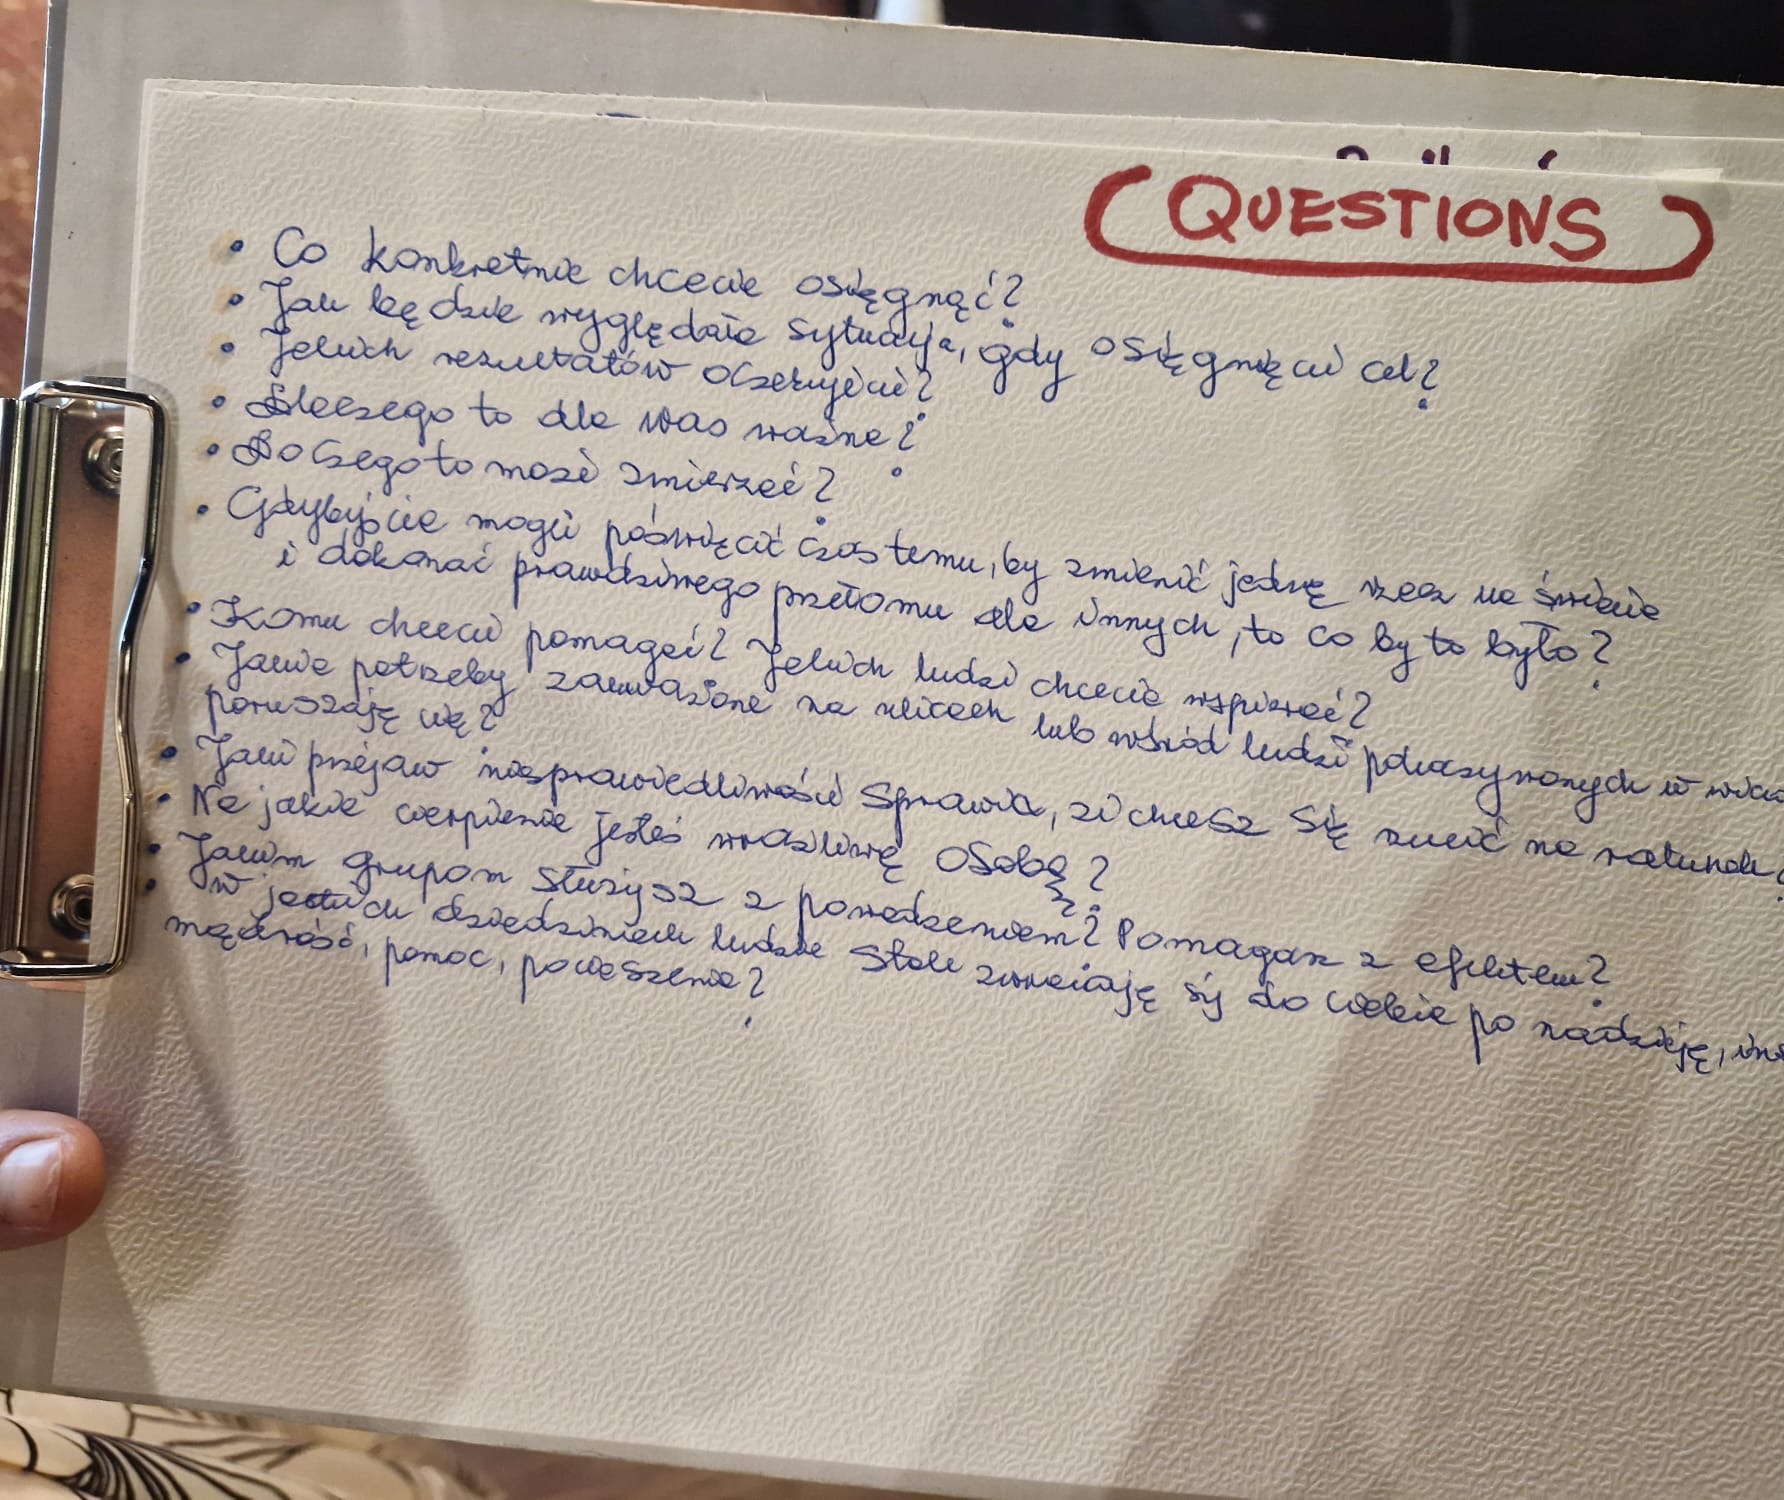 QUESTIONS
• Co konkretnie chcecie osięgnąć?
• Jak będzie wyglądała sytuacja, gdy osięgnięcie cel?
• Jakich rezultatów oczekujecie?
• Dlaczego to dla was ważne?
• Do czego to może zmierzać?
• Gdybyście mogli poświęcić czas temu, by zmienić jedną rzecz na świecie
i dokonać prawdziwego przełomu dla innych, to co by to było?
• Komu chcecie pomagać? Jakich ludzi chcecie wspierać?
• Jakie potrzeby zauważone na ulicach lub wśród ludzi pokazywanych w
poruszają cię?
• Jaki przejaw niesprawiedliwości sprawia, że chcesz się rzucić na ratunek?
• Na jakie cierpienie jesteś wrażliwą osobą?
• Jakim grupom służysz z powodzeniem? Pomagasz z efektem?
• W jakich dziedzinach ludzie stale zwracają się do ciebie po nadzieję,
mądrość, pomoc, pocieszenie?